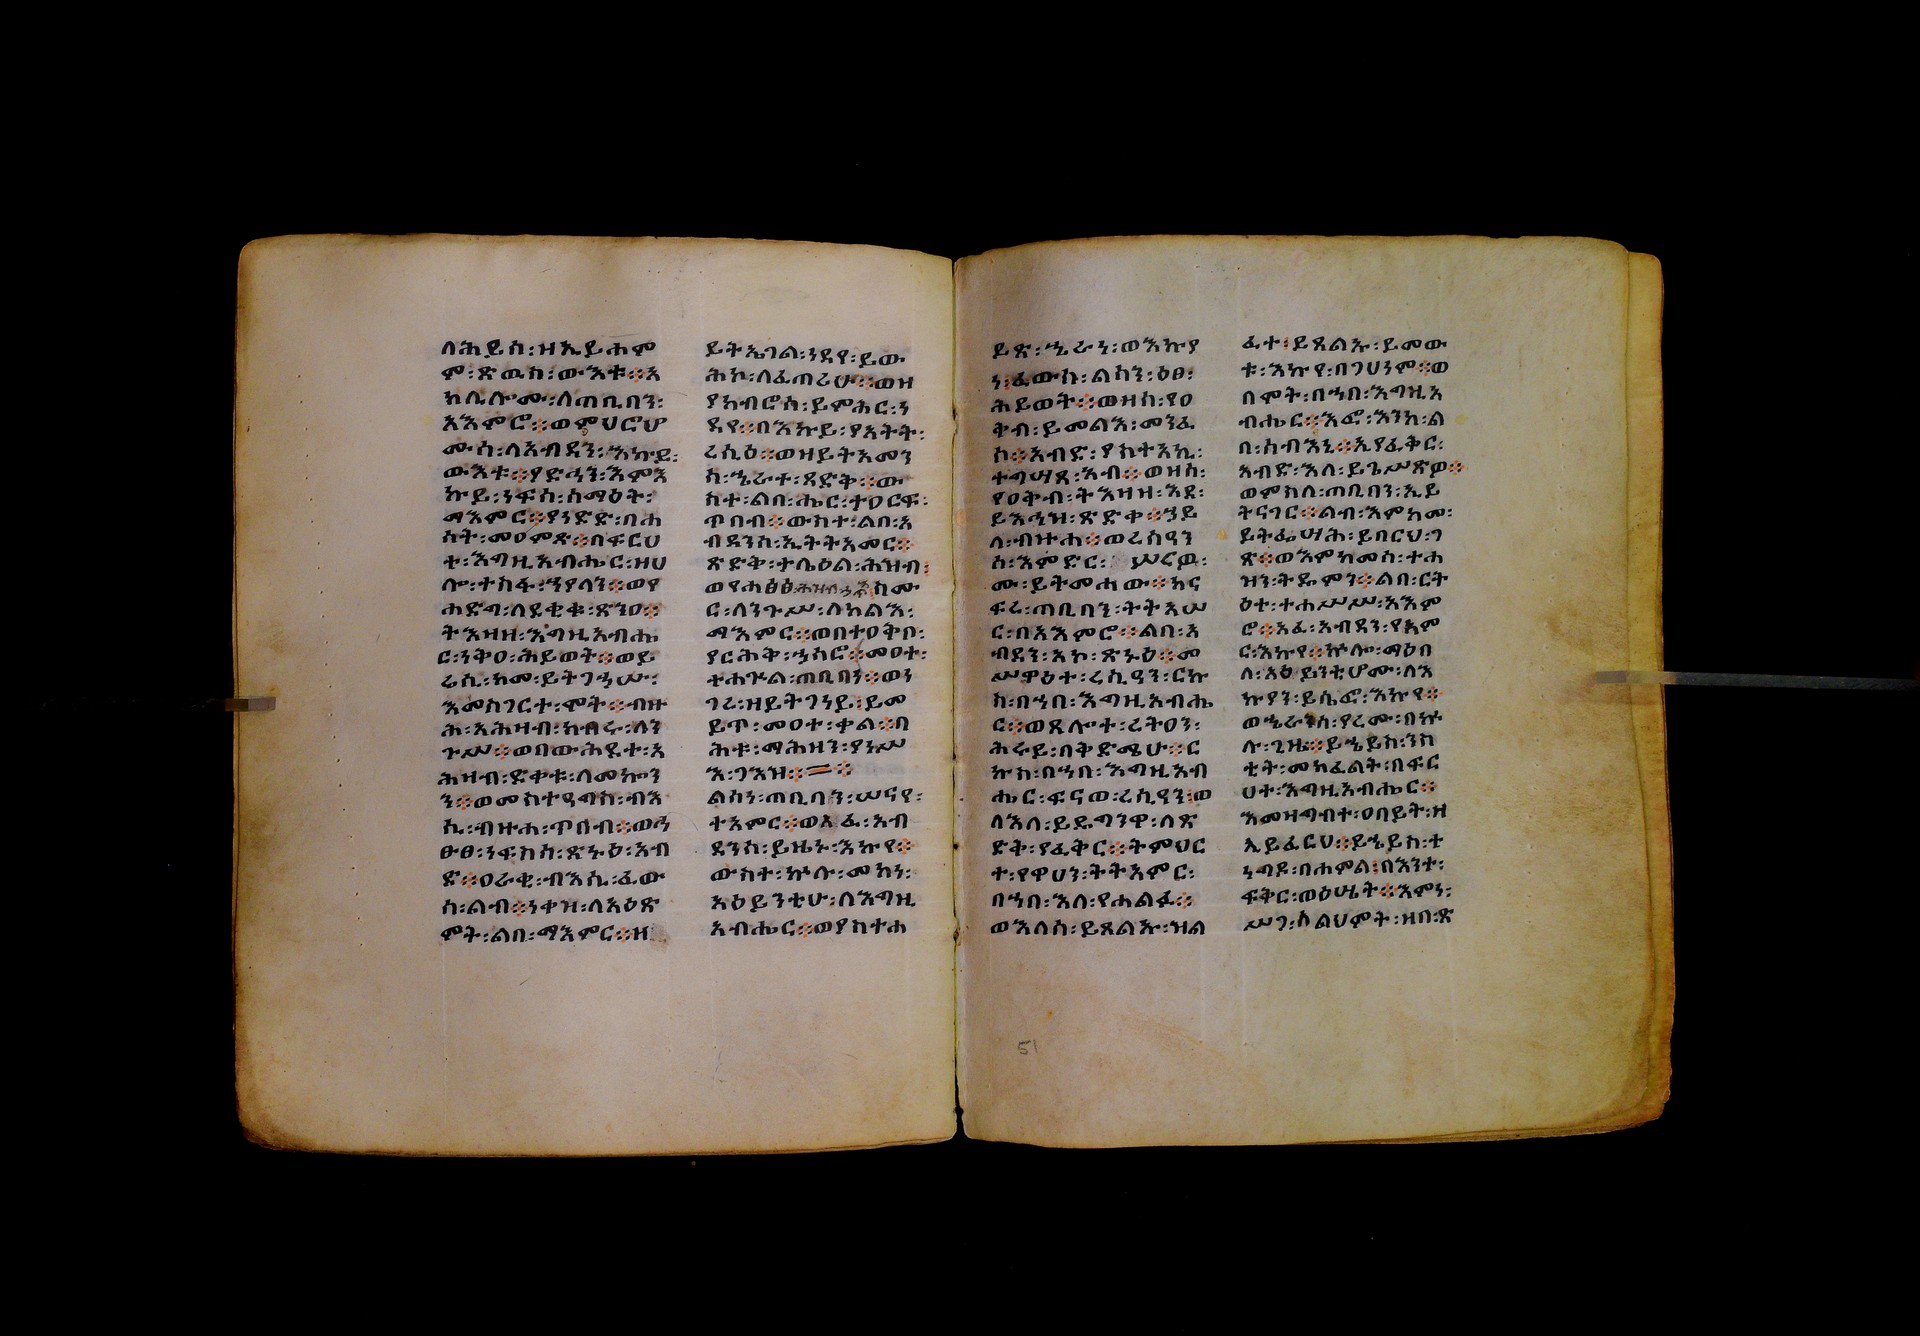 ለሕይስ፡ዝኢይሐም
ም፡ጽዉከ፡ውእቱ።አ
ክሊሎሙ፡ለጠቢባን፡
አእምሮ።ወምህሮሆ
ሙሰ፡ለአብዳን፡እኩይ፡
ውእቱ።ያድኅን፡እምእ
ኩይ፡ነፍሰ፡ስማዕት፡
ማእምር።ያነድድ፡በሐ
ሰት፡መዐምጽ።በፍርሀ
ተ፡እግዚአብሔር፡ዝሀ
ሎ፡ተስፋ፡ኀያላን።ወየ
ሐድግ፡ለደቂቁ፡ጽንዐ።
ትእዛዘ፡እግዚአብሔ
ር፡ነቅዐ፡ሕይወት።ወይ
ሬሲ፡ከመ፡ይትገኀሡ፡
እመስገርተ፡ሞት።ብዙ
ሕ፡አሕዛብ፡ክብሩ፡ለን
ጉሥ።ወበውሕደተ፡አ
ሕዛብ፡ድቀቱ፡ለመኰን
ን።ወመስተዓግስ፡ብእ
ሲ፡ብዙሐ፡ጥበብ።ወኅ
ፁፀ፡ነፍስሰ፡ጽኑዕ፡አብ
ድ።ዐራቂ፡ብእሲ፡ፈው
ስ፡ልብ።ነቀዝ፡ለአዕጽ
ምት፡ልበ፡ማእምር።ዘ
ይትኤገል፡ነዳየ፡ይው
ሕኮ፡ለፈጣሪሁ።ወዘ
ያከብሮሰ፡ይምሕር፡ነ
ዳየ።በእኩይ፡ያአትት፡
ረሲዕ።ወዘይትአመን
ሰ፡ኄራተ፡ጻድቅ።ው
ስተ፡ልበ፡ሔር፡ተዐርፍ፡
ጥበብ።ውስተ፡ልበ፡አ
ብዳንሰ፡ኢትትአመር።
ጽድቅ፡ተሌዕል፡ሕዝብ፡
ር፡ለንጉሥ፡ለክልእ፡
ማእምር።ወበተዐቅቦ፡
ያርሕቅ፡ኀስሮ።መዐተ፡
ተሐጕል፡ጠቢባን።ወን
ገረ፡ዘይትገነይ፡ይመ
ይጥ፡መዐተ፡ቀል።በ
ሕቱ፡ማሕዘን፡ያነሥ
እ፡ገእዝ።
ልሳነ፡ጠቢባን፡ሠናየ፡
ተአምር።ወአፈ፡አብ
ዳንሰ፡ይዜኑ፡እኩየ።
ውስተ፡ኵሉ፡መካን፡
አዕይንቲሁ፡ለእግዚ
አብሔር።ወያስተሐ
ይጽ፡ኄራነ፡ወእኩያ
ነ።ፈውሰ፡ልሳን፡ዕፀ፡
ሕይወት።ወዘሰ፡የዐ
ቅብ፡ይመልእ፡መንፈ
ሰ።አብድ፡ያስተአኪ፡
ተግሣጸ፡አብ።ወዘሰ፡
የዐቅብ፡ትእዛዘ፡እደ፡
ይእኅዝ፡ጽድቀ።ኀይ
ለ፡ብዙሐ።ወረሲዓን
ሰ፡እምድር፡ሥረዉ፡
ሙ፡ይትመሐው።ከና
ፍረ፡ጠቢባን፡ትትአሠ
ር፡በአእምሮ።ልበ፡አ
ብዳን፡አኮ፡ጽኑዕ።መ
ሥዋዕተ፡ረሲዓን፡ርኩ
ስ፡በኀበ፡እግዚአብሔ
ር።ወጸሎተ፡ረትዐን፡
ሕሩይ፡በቅድሜሁ።ር
ኩስ፡በኀበ፡እግዚአብ
ሔር፡ፍናወ፡ረሲዓን፡ወ
ለእለ፡ይዴግንዋ፡ለጽ
ድቅ፡ያፈቅር።ትምህር
ተ፡የዋህን፡ትትአምር፡
በኀበ፡እለ፡የሐልፉ።
ወእለሰ፡ይጸልኡ፡ዝል
ፈተ፡ይጸልኡ፡ይመው
ቱ፡እኩየ፡በገሀነም።ወ
በሞት፡በኀበ፡እግዚአ
ብሔር።እፎ፡እንከ፡ል
በ፡ሰብእኒ።ኢያፈቅር፡
አብድ፡እለ፡ይጌሥጽዎ።
ወምስለ፡ጠቢባን፡ኢይ
ትናገር።ልብ፡እምከመ፡
ይትፌሣሕ፡ይበርህ፡ገ
ጽ።ወእምከመሰ፡ተሐ
ዝነ፡ትዴምን።ልበ፡ርት
ዕተ፡ተሐሥሥ፡አእም
ሮ።አፈ፡አብዳን፡የአም
ር፡እኩየ።ኵሎ፡ማዕበ
ለ፡አዕይንቲሆሙ፡ለእ
ኩያን፡ይሴፎ፡እኩየ።
ወኄራንሰ፡ያረሙ፡በኵ
ሉ፡ጊዜ።ይኄይስ፡ንስ
ቲት፡መክፈልት፡በፍር
ሀተ፡እግዚአብሔር።
እመዛግብተ፡ዐበይት፡ዘ
ኢይፈርህ።ይኄይስ፡ተ
ነግዶ፡በሐምል፡በእንተ፡
ፍቅር፡ወዕሤት።እምነ፡
ሥጋ፡ስልህምት፡ዘበ፡ጽ
51